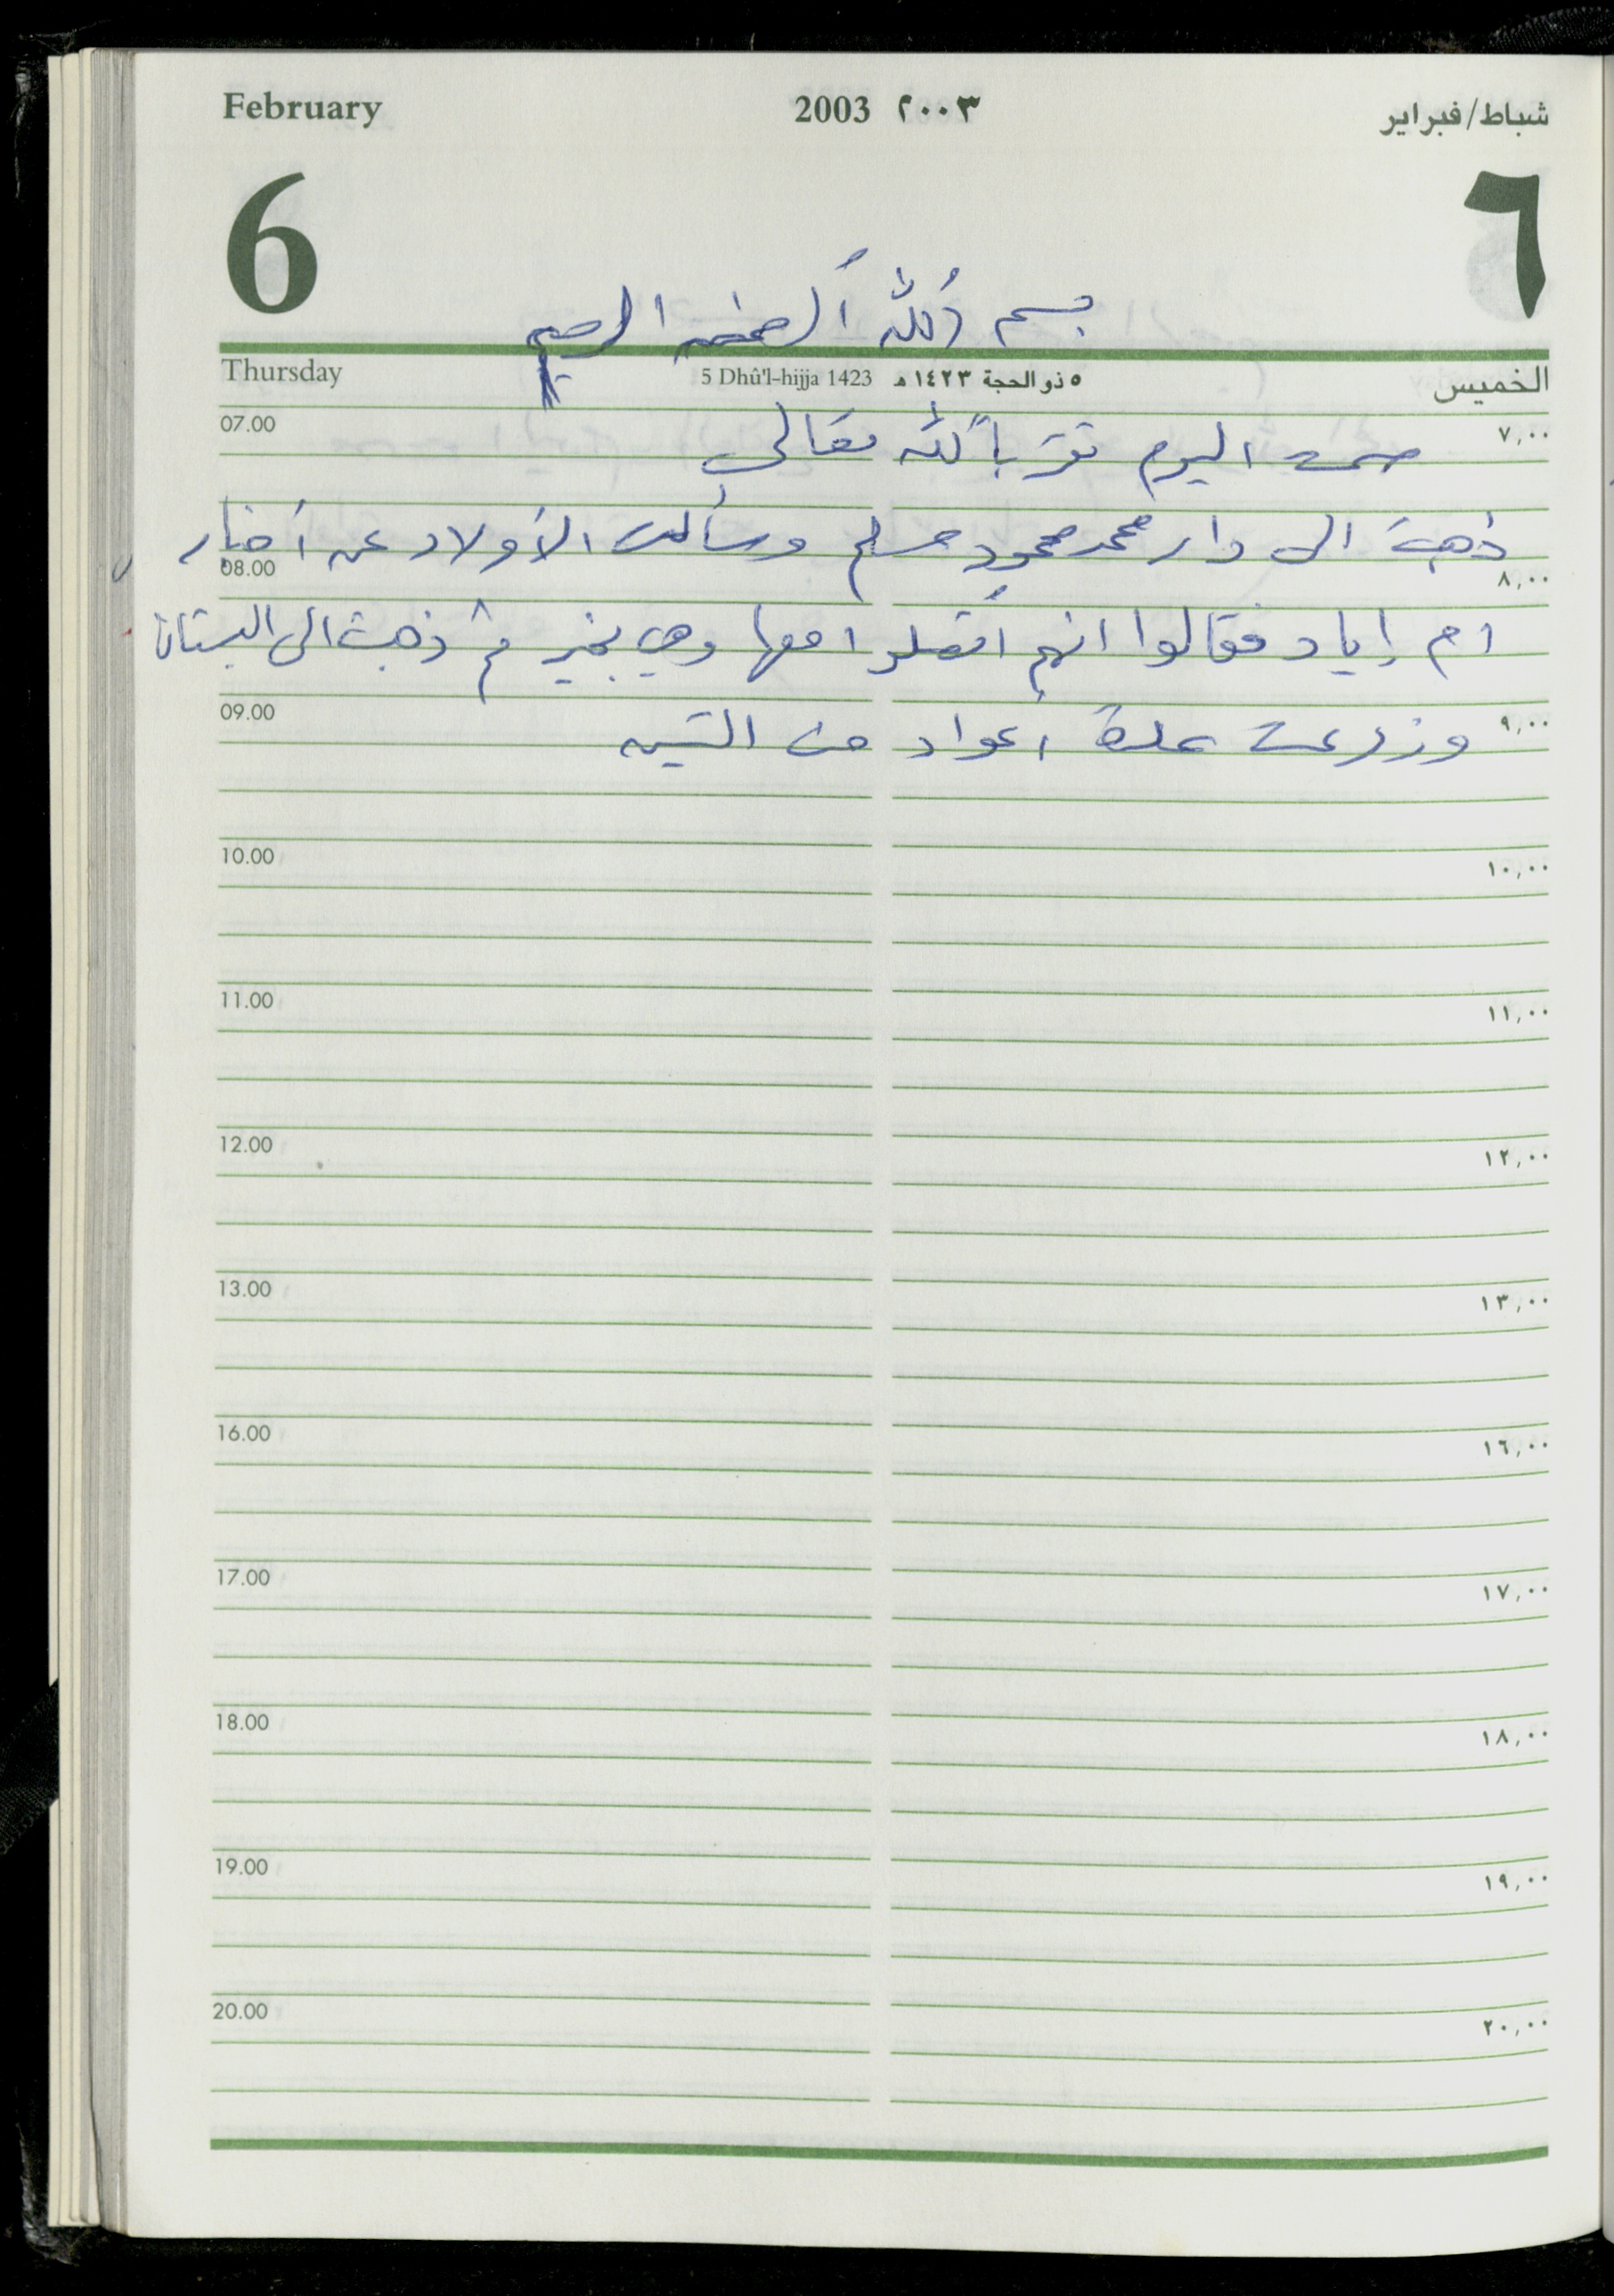 February 2003 ٢٠٠٣ شباط/فبراير
6 ٦
بسم الله الرحمن الرحيم
Thursday 5 Dhû'l-hijja 1423 ٥ ذو الحجة ١٤٢٣ هـ الخميس
07.00 ٧,٠٠
صمت اليوم تقرباً لله تعالى
ذهبت الى دار محمد محمود مسلم وسألت الأولاد عن أخبار
08.00 ٨,٠٠
ام إياد فقالوا انهم اتصلوا معها وهي بخير ثم ذهبت الى البستان
09.00 ٩,٠٠
وزرعت عدة أعواد من التين
10.00 ١٠,٠٠
11.00 ١١,٠٠
12.00 ١٢,٠٠
13.00 ١٣,٠٠
16.00 ١٦,٠٠
17.00 ١٧,٠٠
18.00 ١٨,٠٠
19.00 ١٩,٠٠
20.00 ٢٠,٠٠